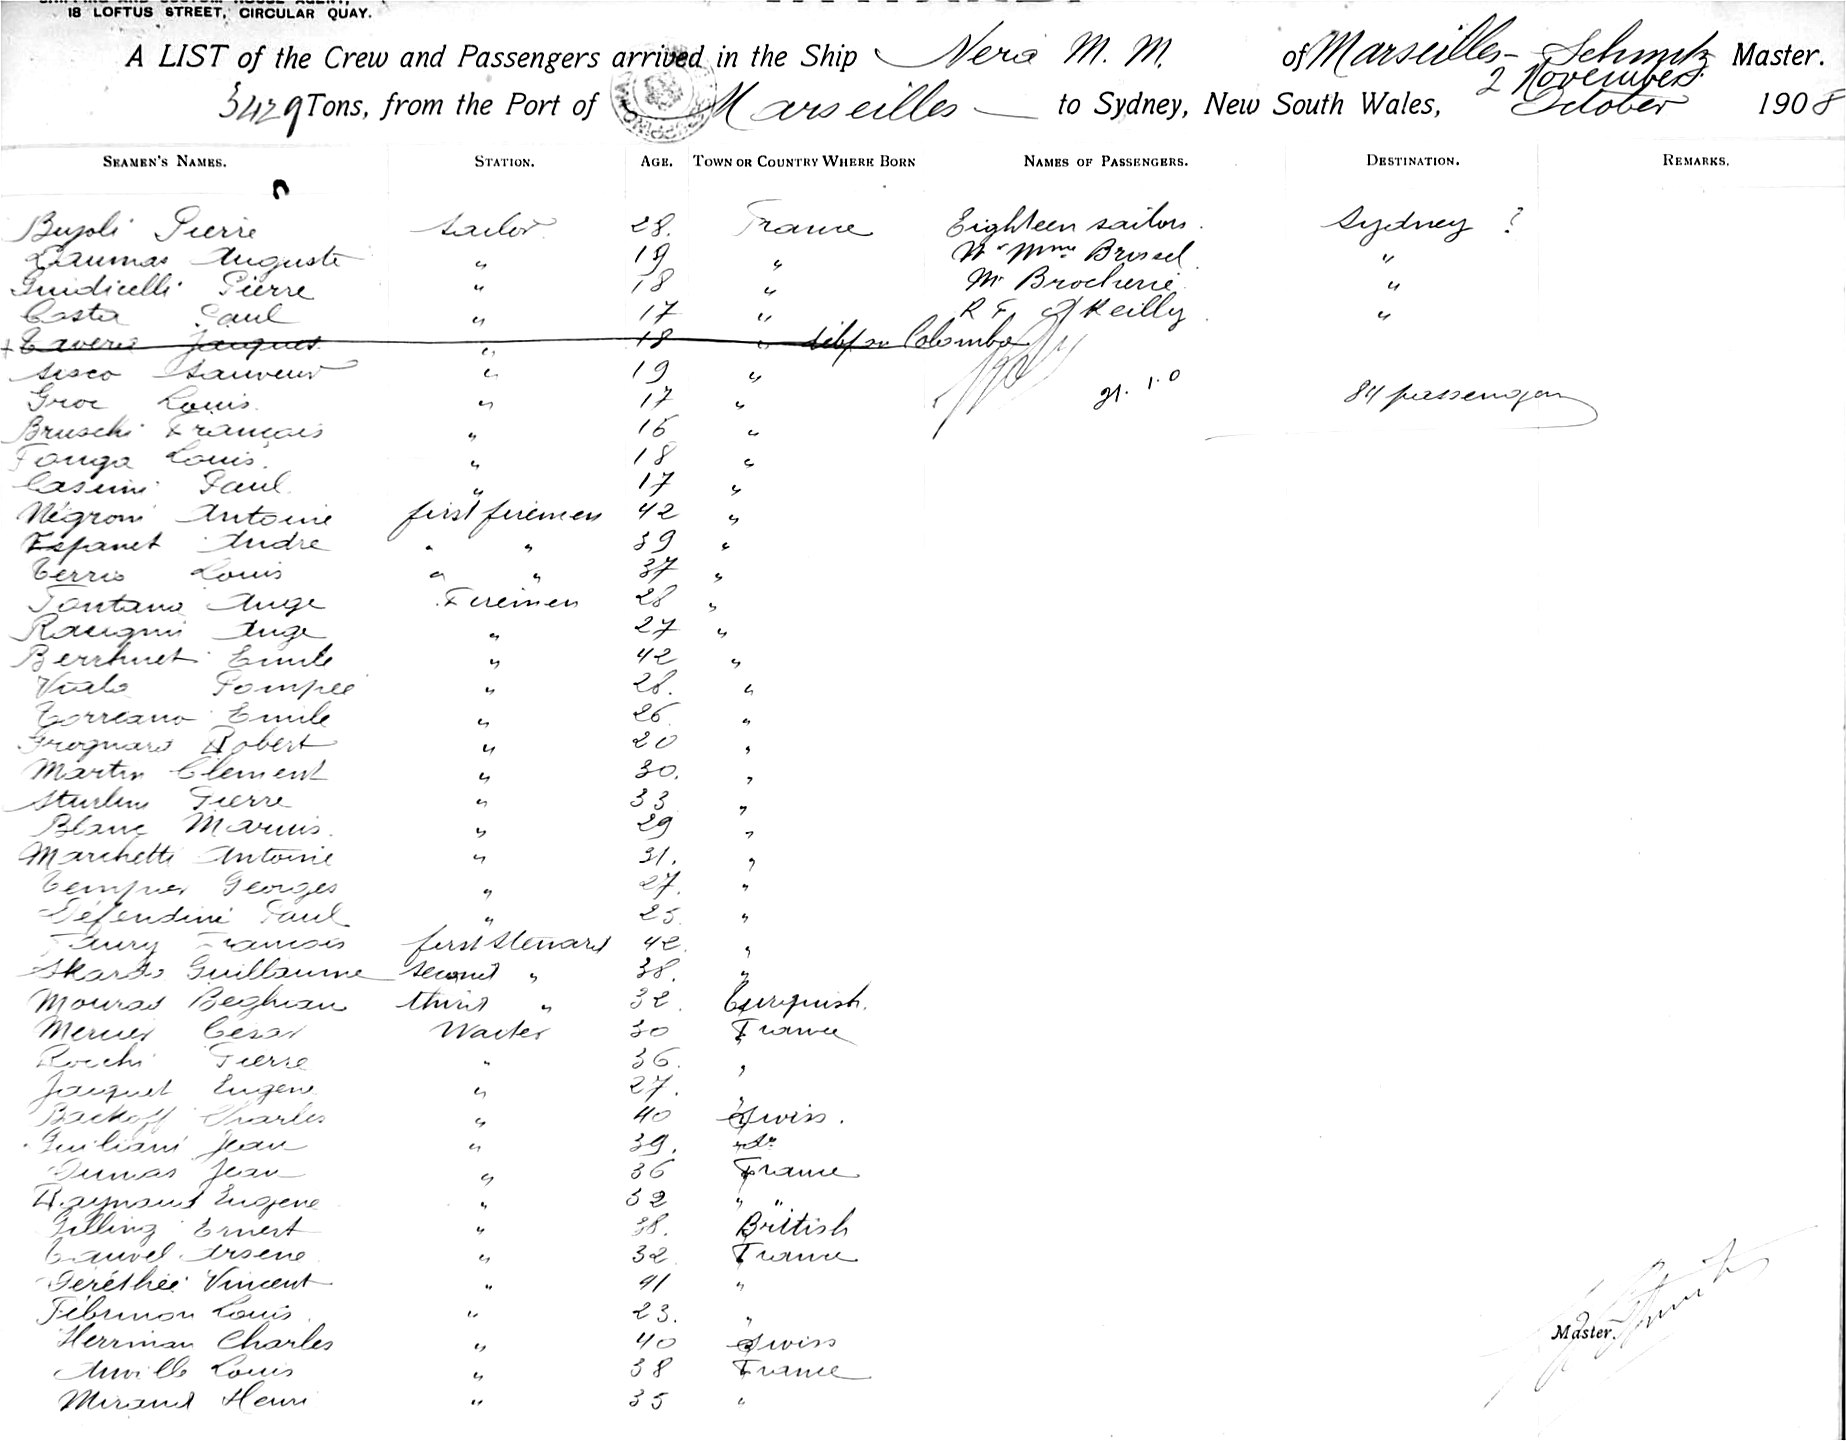 18 LOFTUS STREET, CIRCULAR QUAY.
A LIST of the Crew and Passengers arrived in the Ship Nera M. M. of Marseilles - Schmitz Master.
2 November
3429 Tons, from the Port of Marseilles — to Sydney, New South Wales, October 1908
SEAMEN'S NAMES. STATION. AGE. TOWN OR COUNTRY WHERE BORN NAMES OF PASSENGERS. DESTINATION. REMARKS.
Pierre sailor 28. France Eighteen sailors. Sydney ?
Daumas Auguste " 19 " Mr Mme Brossel "
Guidicelli Pierre " 18 " Mr Brocherie "
Costa Paul " 17 " R F O'Reilly "
Tavera Jacques " 18 " Colombo
Sisco Sauveur " 19 "
Groc Louis " 17 " 84 passengers
Bruschi François " 16 "
Fonga Louis. " 18 "
Casimi Paul " 17 "
Négroni Antoine first firemen 42 "
Espanet André " " 39 "
Terris Louis " " 37 "
Fontana Ange Firemen 28 "
Ange " 27 "
Emile " 42 "
Viale Pompée " 28. "
Torreano Emile " 26 "
Frognard Robert " 20 "
Martin Clement " 30. "
Pierre " 33 "
Blanc Marius. " 29 "
Marchetti Antoine " 31. "
Tempier Georges " 27. "
Défendini Paul " 25. "
Faury François first steward 42. "
Guillaume second " 38. "
Mourad Beghian third " 32. Turquish.
Mercier Cesar Waiter 30 France
Rocchi Pierre " 36. "
Jacquet Eugene " 27. "
Backoff Charles " 40 Swiss.
Guiliani Jean " 39. "
Dumas Jean " 36 France
Raynaud Eugene " 32 " "
Ernest " 38. British
Cauvel Arsene " 32 France
Vincent " 41 "
Louis " 23. "
Herriman Charles " 40 Swiss
Anville Louis " 38 France
Mirand Henri " 35 "
Master.